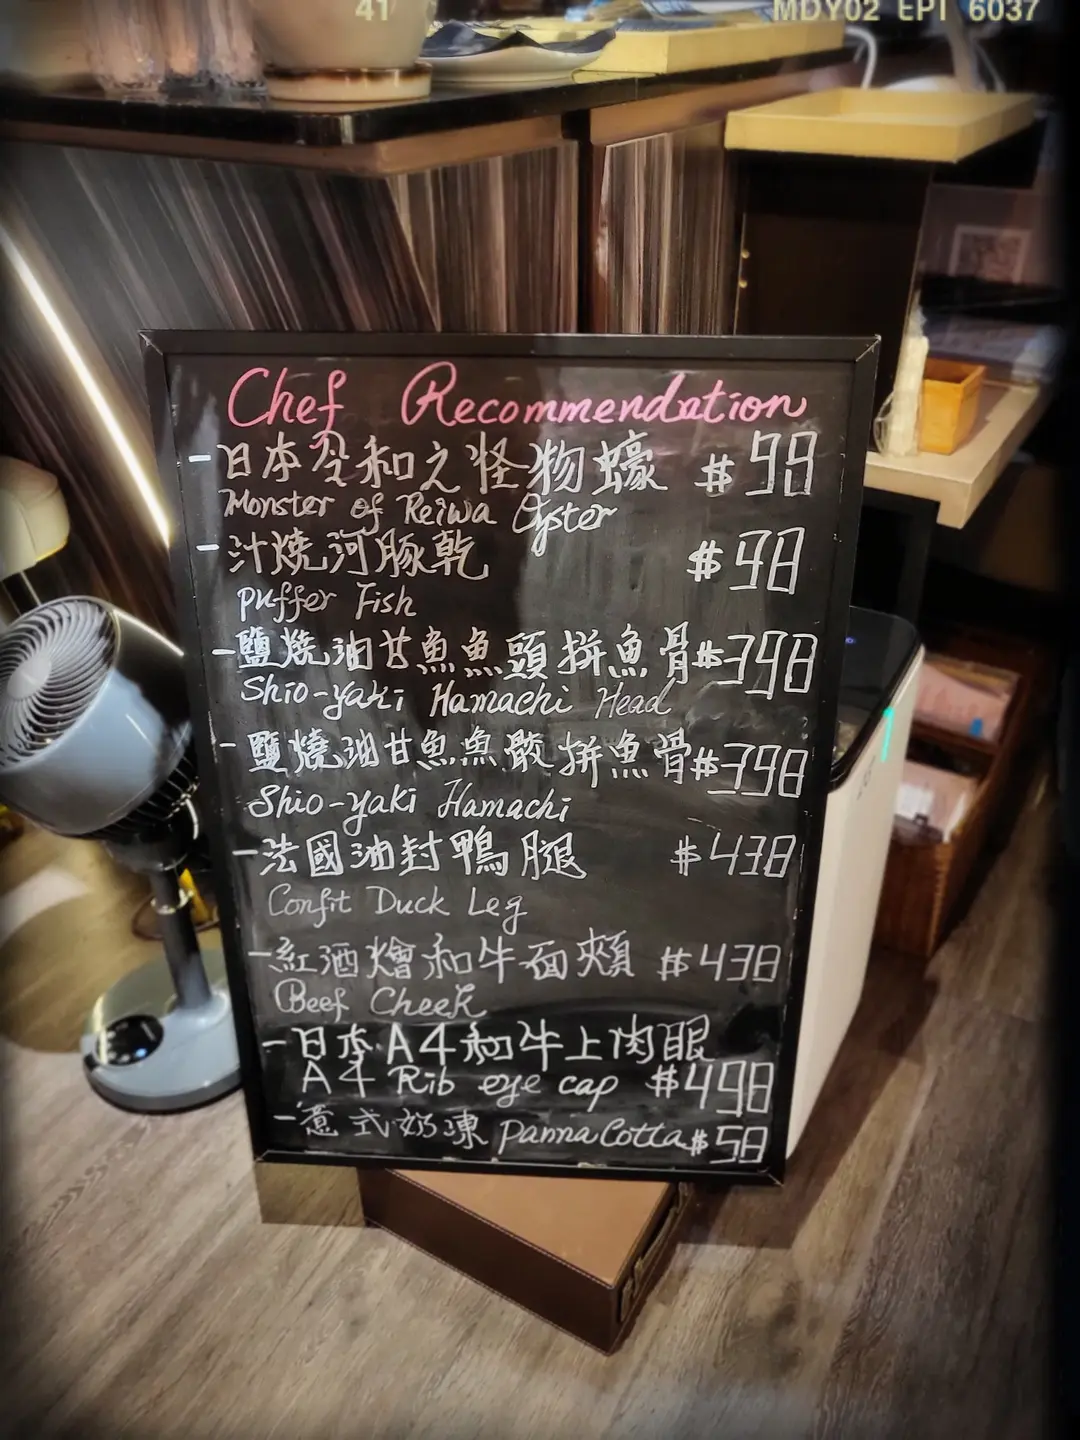 41
MDY02 EPI 6037
Chef Recommendation
- 日本令和之怪物蠔 $98
Monster of Reiwa Oyster
- 汁燒河豚乾 $98
Puffer Fish
- 鹽燒油甘魚魚頭拼魚骨 $398
Shio-yaki Hamachi Head
- 鹽燒油甘魚魚鮫拼魚骨 $398
Shio-yaki Hamachi
- 法國油封鴨腿 $438
Confit Duck Leg
- 紅酒燴和牛面頰 $438
Beef Cheek
- 日本A4和牛上肉眼
A4 Rib eye cap $498
- 意式奶凍 panna Cotta $58